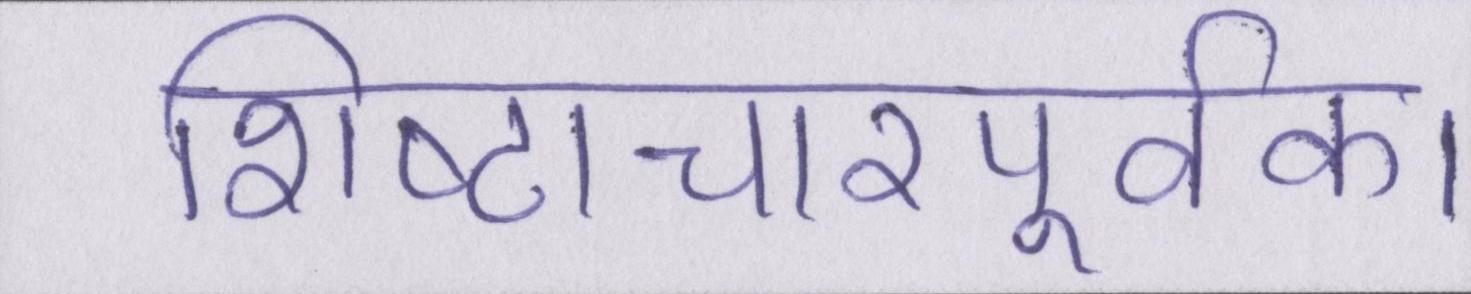 शिष्टाचारपूर्वक।